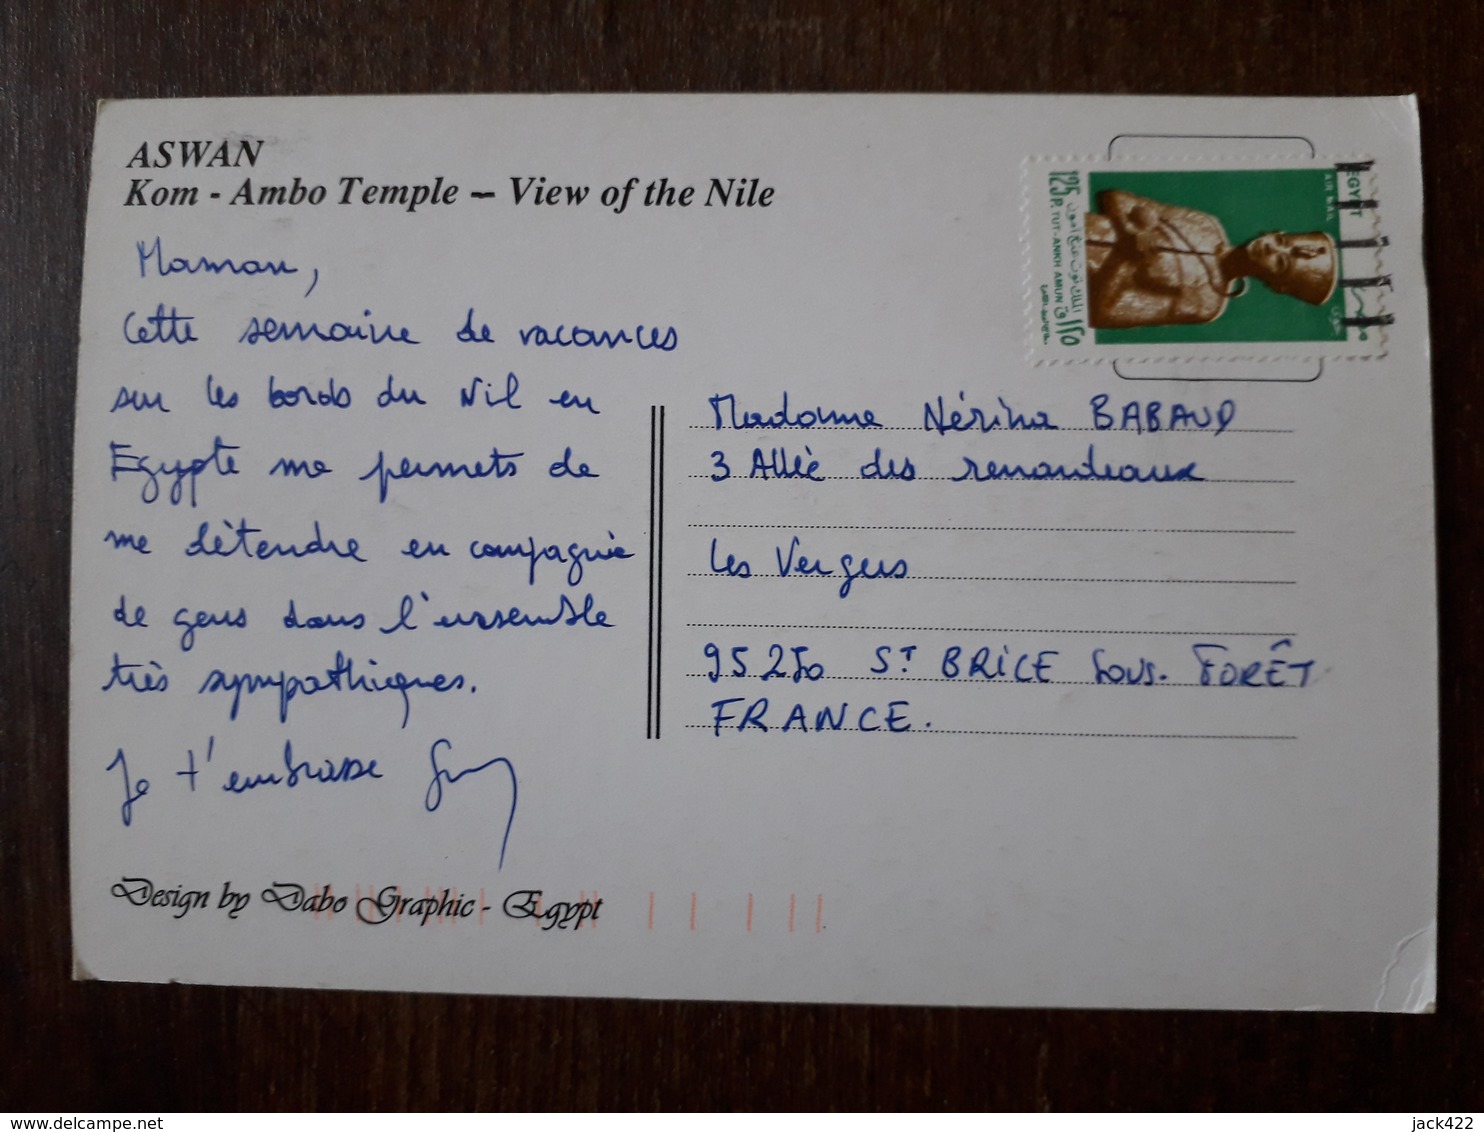 ASWAN
Kom - Ambo Temple – View of the Nile
Maman,
Cette semaine de vacances
sur les bords du Nil en
Egypte me permets de
me détendre en compagnie
de gens dans l'ensemble
très sympathiques.
Je t'embrasse
Design by Dabo Graphic - Egypt
EGYPT
AIR MAIL
مصر
125 P. TUT-ANKH AMUN
الملك توت عنخ آمون
١٢٥
Madame Nérina BABAUD
3 Allée des renardeaux
Les Vergers
95250 ST BRICE SOUS. FORÊT
FRANCE.
delcampe.net
jack422